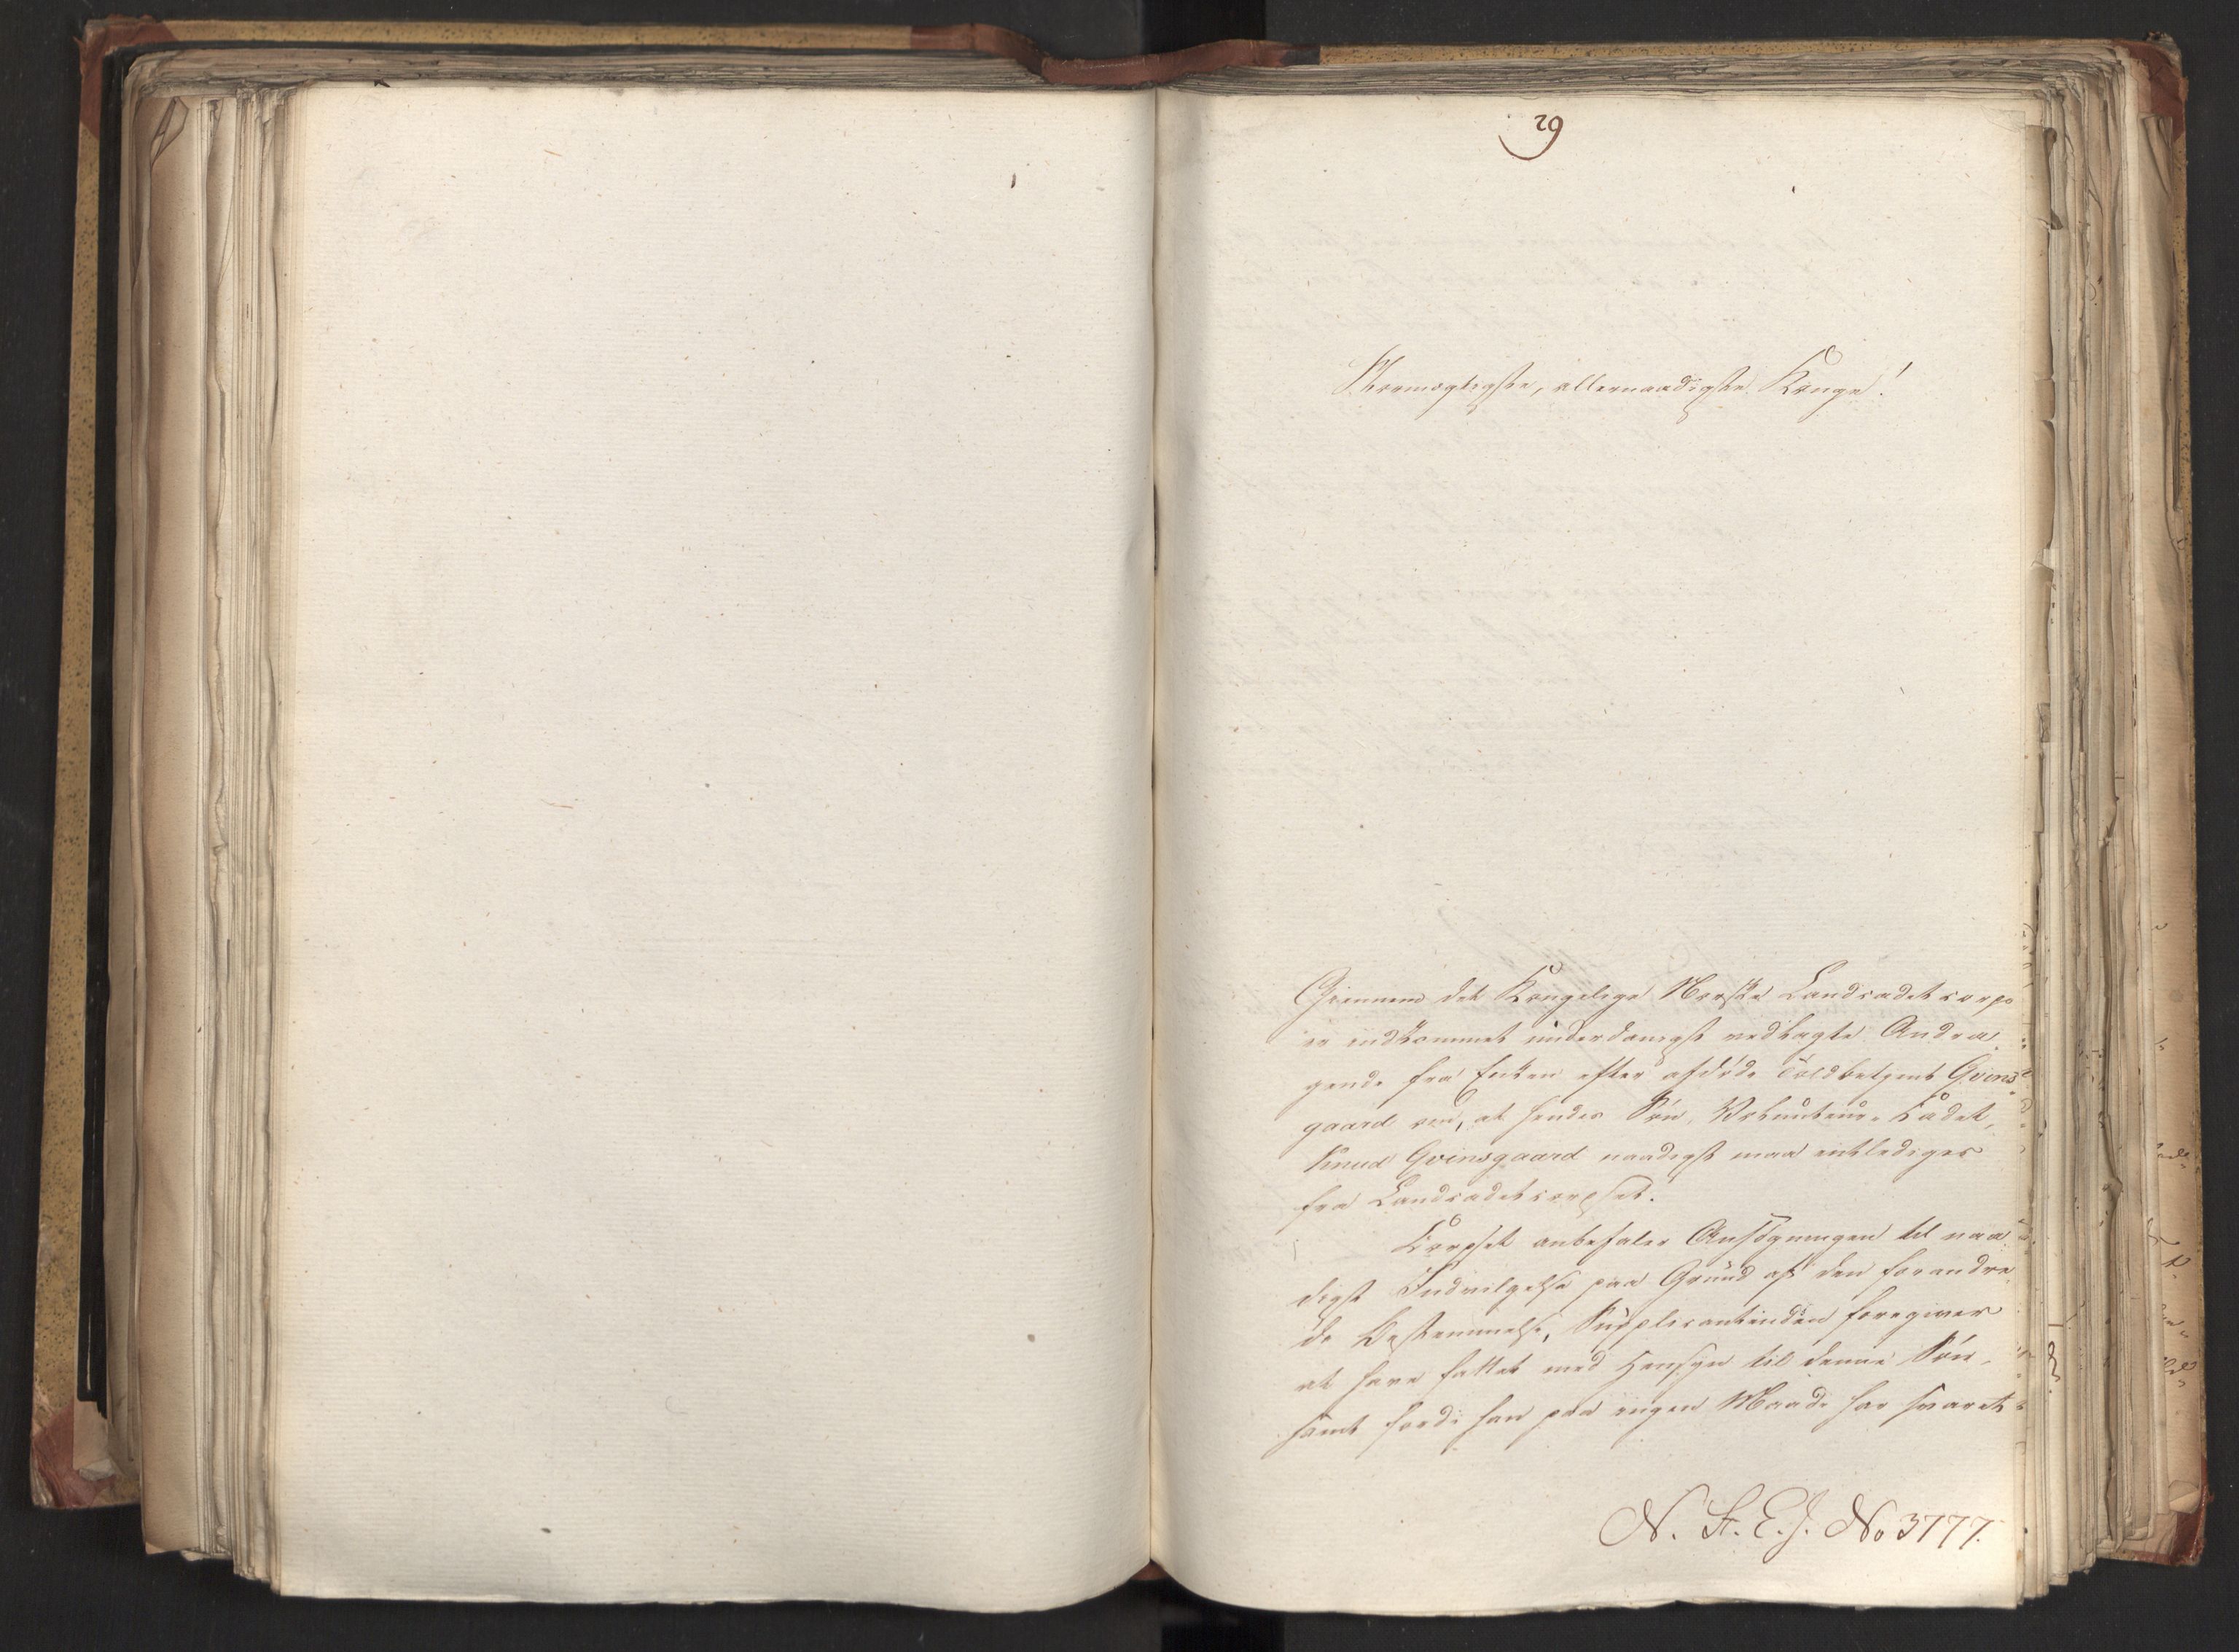 29
Stormægtigste, allernaadigste Konge!
Giennem det Kongelige Norske Landcadetcorps
er indkommet underdanigst vedlagte Andra-
gende fra Enken efter afdøde Toldbetjent Gvens-
gaard om, at hendes Søn, Volunteur-Cadet,
Knud Gvensgaard naadigst maa entlediges
fra Landcadetcorpset.
Corpset anbefaler Ansøgningen til naa-
digst Indvilgelse paa Grund af den forandre-
de Bestemmelse, Supplicantinden foregiver
at have fattet med Hensyn til denne Søn,
samt fordi han paa ingen Maade har svaret
N. St. E. J. No 3777.